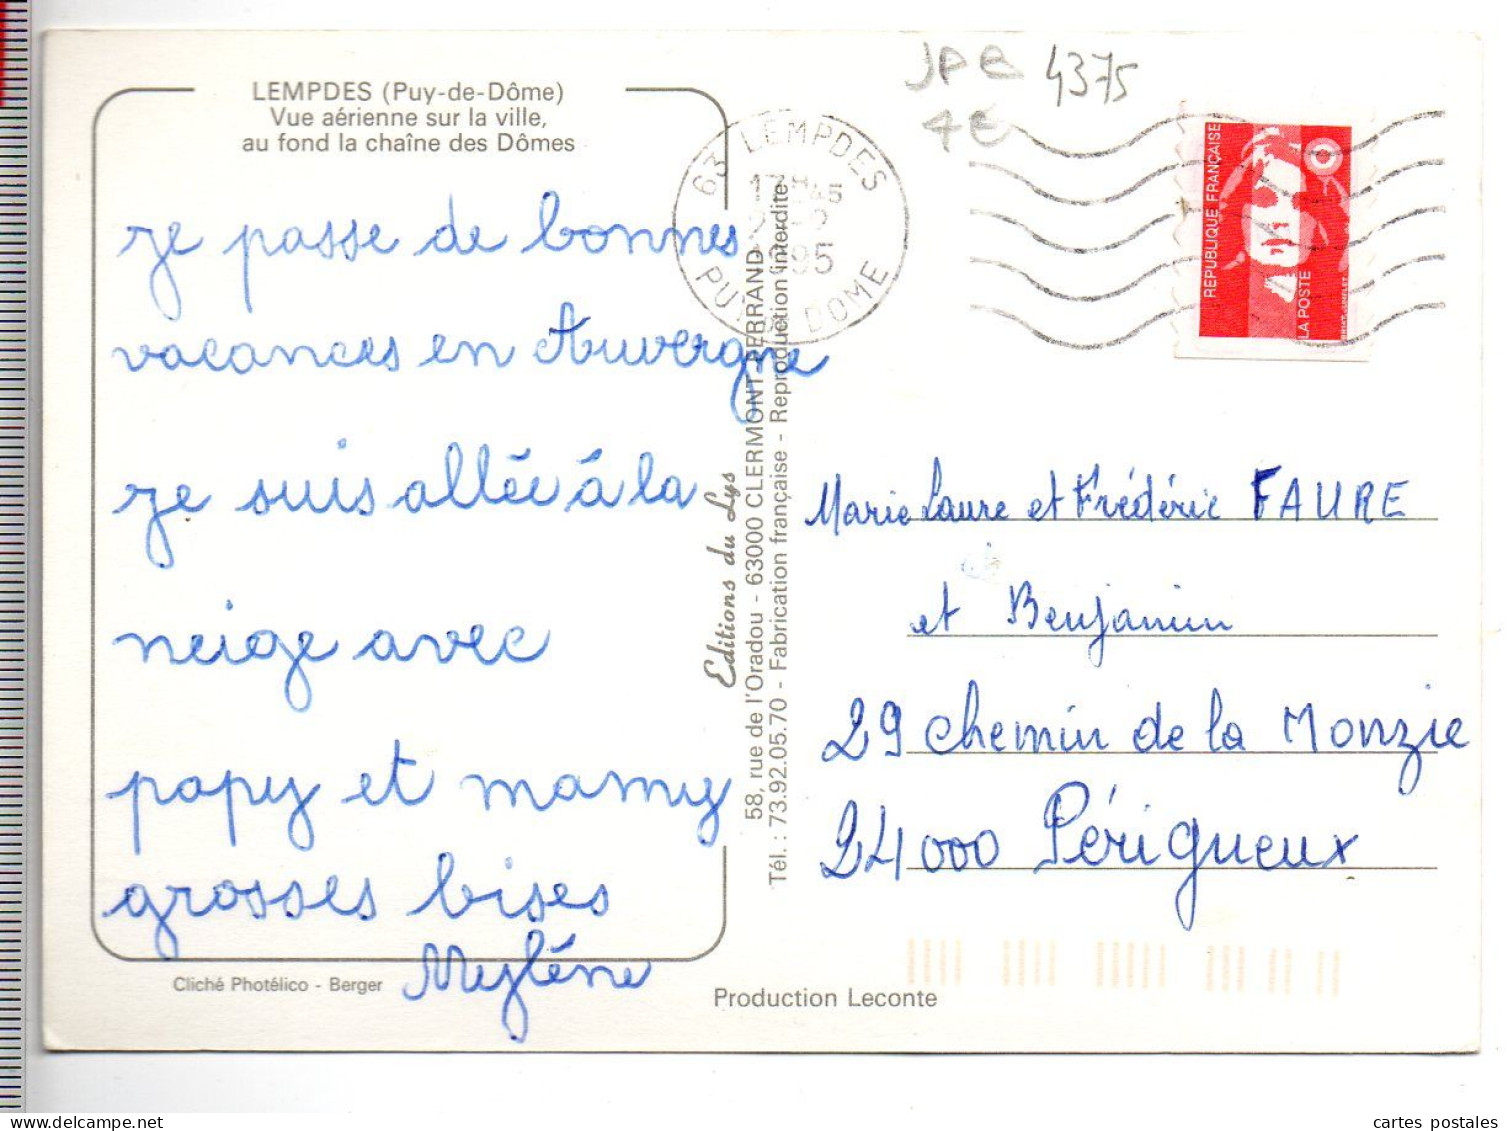 JPB 4375
4€
LEMPDES (Puy-de-Dôme)
Vue aérienne sur la ville,
au fond la chaîne des Dômes
63 LEMPDES
PUY DE DOME
RÉPUBLIQUE FRANÇAISE
LA POSTE
je passe de bonnes
vacances en Auvergne
je suis allée à la
neige avec
papy et mamy
grosses bises
Mylène
Editions du Lys
58, rue de l'Oradou - 63000 CLERMONT-FERRAND
Tél. : 73.92.05.70 - Fabrication française - Reproduction interdite
Marie Laure et Frédéric FAURE
et Benjamin
29 chemin de la Monzie
24000 Périgueux
Cliché Photélico - Berger
Production Leconte
cartes postales